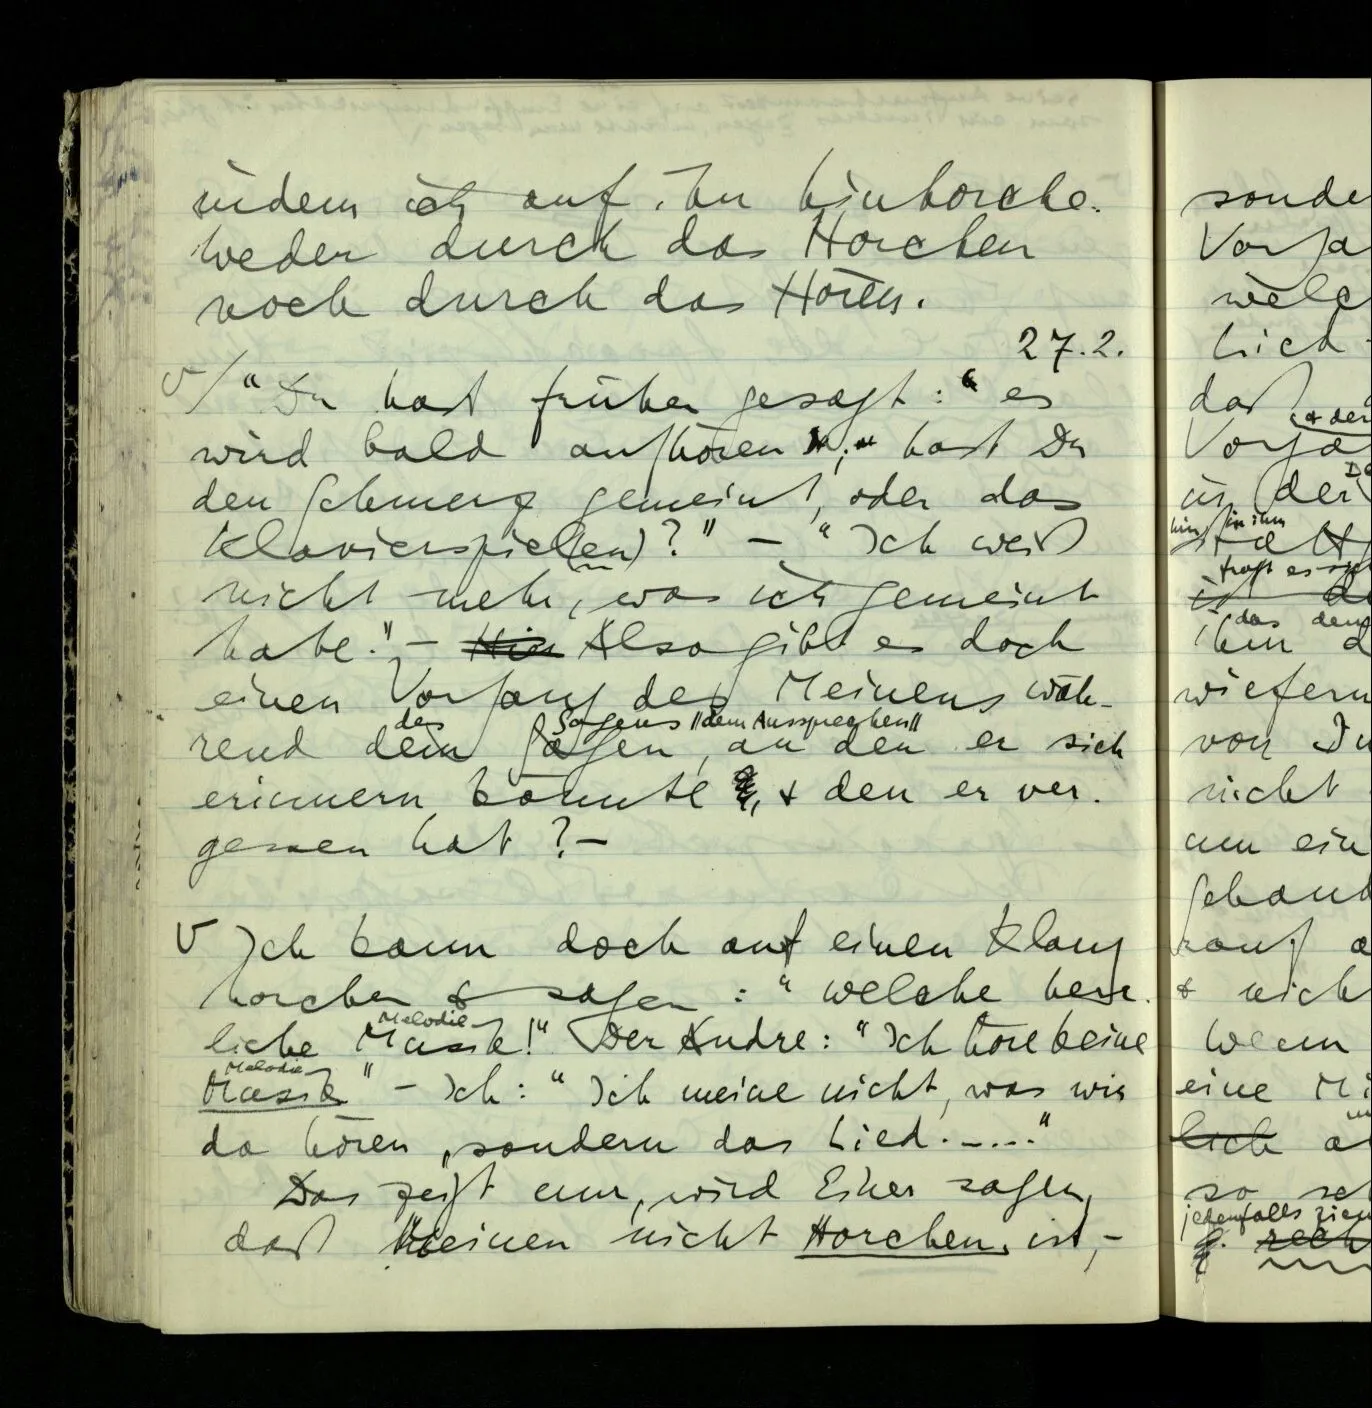 indem ich auf ihn hinhorche.
Weder durch das Horchen
noch durch das Hören.
27.2.
"Du hast früher gesagt: "es
wird bald aufhören", hast Du
den Schmerz gemeint, oder das
Klavierspiel(en)?" – "Ich weiß
nicht mehr, was ich gemeint
habe." – Also gibt es doch
einen Vorgang des Meinens wäh-
des Sagens "dem Aussprechen"
rend dem Sagen, an den er sich
erinnern könnte, & den er ver-
gessen hat? –
Ich kann doch auf einen Klang
horchen & sagen: "welche herr-
Melodie
liche Musik!" Der Andre: "Ich höre keine
Melodie
Musik" – Ich: "Ich meine nicht, was wir
da hören, sondern das Lied....."
Das zeigt nur, wird Einer sagen,
daß Meinen nicht Horchen ist, –
sonde
Vorga
welc
daß
& der
Vorga
in der
in ihm
fragt es sich
das dem
ihm d
wiefern
von Du
nicht
um ein
gehand
rauf a
& nich
Wenn
eine M
lich a
so se
jedenfalls
rech